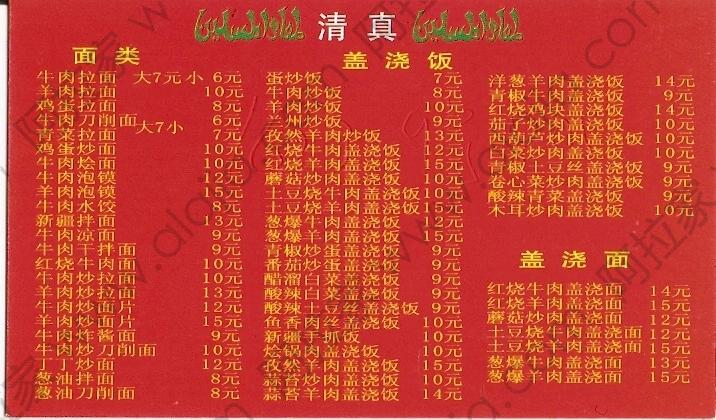 清真
面类
牛肉拉面 大7元 小 6元
羊肉拉面 10元
鸡蛋拉面 8元
牛肉刀削面 大7小 6元
青菜拉面 7元
鸡蛋炒面 10元
牛肉烩面 10元
牛肉泡馍 12元
羊肉泡馍 15元
牛肉水饺 8元
新疆拌面 13元
牛肉凉面 9元
牛肉干拌面 9元
红烧牛肉面 10元
牛肉炒拉面 10元
羊肉炒拉面 13元
牛肉炒面片 12元
羊肉炒面片 15元
牛肉炸酱面 9元
牛肉炒刀削面 10元
丁丁炒面 12元
葱油拌面 8元
葱油刀削面 8元
盖浇饭
蛋炒饭 7元
牛肉炒饭 8元
羊肉炒饭 10元
兰州炒饭 9元
孜然羊肉炒饭 13元
红烧牛肉盖浇饭 12元
红烧羊肉盖浇饭 15元
蘑菇炒肉盖浇饭 10元
土豆烧牛肉盖浇饭 12元
土豆烧羊肉盖浇饭 15元
葱爆牛肉盖浇饭 12元
葱爆羊肉盖浇饭 15元
青椒炒蛋盖浇饭 9元
番茄炒蛋盖浇饭 9元
醋溜白菜盖浇饭 9元
酸辣白菜盖浇饭 9元
酸辣土豆丝盖浇饭 9元
鱼香肉丝盖浇饭 10元
新疆手抓饭 10元
烩锅肉盖浇饭 10元
孜然羊肉盖浇饭 15元
蒜苔炒肉盖浇饭 10元
蒜苔羊肉盖浇饭 14元
洋葱羊肉盖浇饭 14元
青椒牛肉盖浇饭 9元
红烧鸡块盖浇饭 14元
茄子炒肉盖浇饭 10元
西葫芦炒肉盖浇饭 10元
白菜炒肉盖浇饭 10元
青椒土豆丝盖浇饭 9元
卷心菜炒肉盖浇饭 9元
酸辣青菜盖浇饭 9元
木耳炒肉盖浇饭 10元
盖浇面
红烧牛肉盖浇面 14元
红烧羊肉盖浇面 15元
蘑菇炒肉盖浇面 12元
土豆烧牛肉盖浇面 12元
土豆烧羊肉盖浇面 15元
葱爆牛肉盖浇面 13元
葱爆羊肉盖浇面 15元